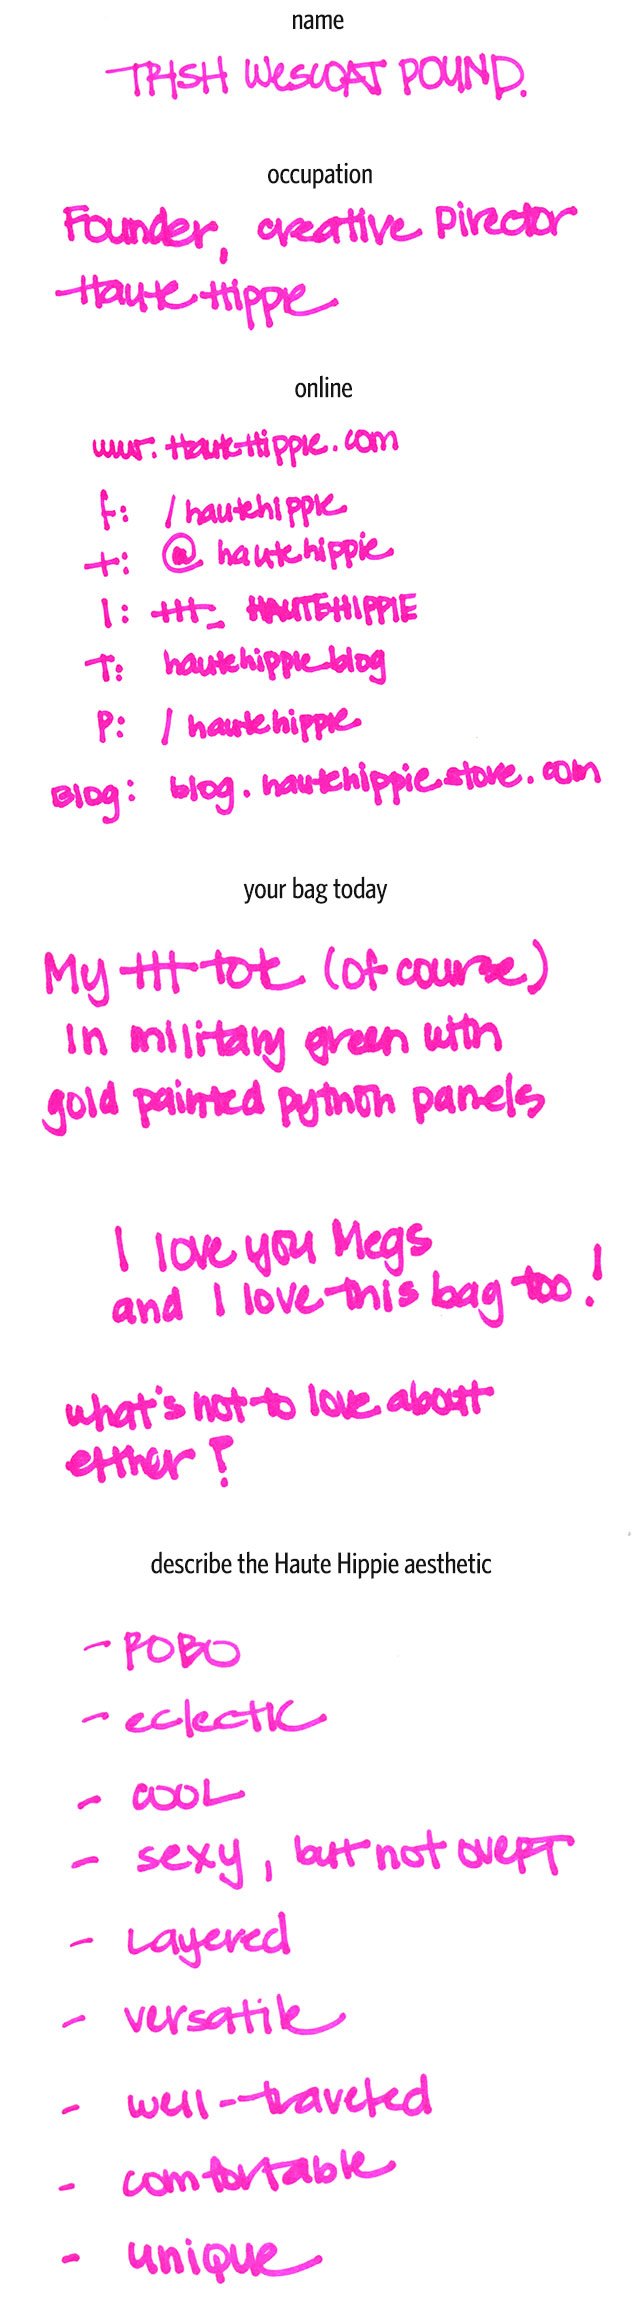 name
TRISH WESCOAT POUND.
occupation
Founder, creative Director
Haute Hippie
online
www.HauteHippie.com
f: /hautehippie
t: @hautehippie
I: HH_HAUTEHIPPIE
T: hautehippieblog
P: /hautehippie
Blog: blog.hautehippiestore.com
your bag today
My HH tote (of course)
In military green with
gold painted python panels
I love you Megs
and I love this bag too!
what's not to love about
either?
describe the Haute Hippie aesthetic
- BOBO
- eclectic
- COOL
- sexy, but not overt
- Layered
- versatile
- well-traveled
- comfortable
- unique